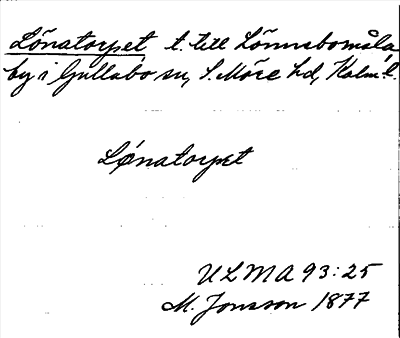 Lönatorpet t. till Lönnsbomåla
by i Gullabo sn, S. Möre hd, Kalm. l.
Lönatorpet
ULMA 93:25
M. Jonsson 1877